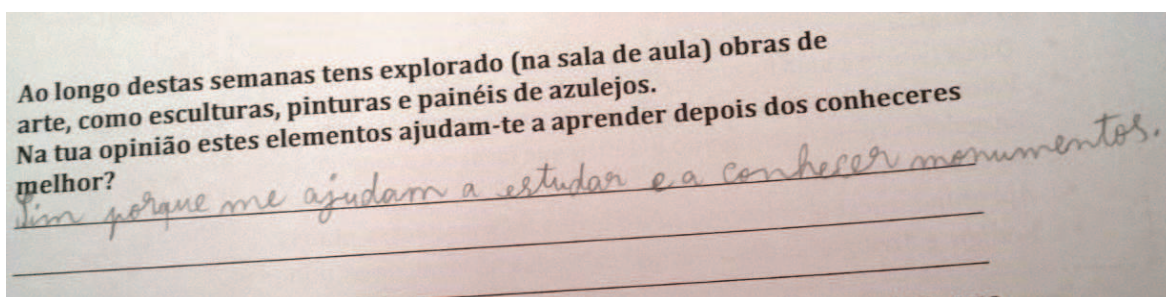 Ao longo destas semanas tens explorado (na sala de aula) obras de
arte, como esculturas, pinturas e painéis de azulejos.
Na tua opinião estes elementos ajudam-te a aprender depois dos conheceres
melhor?
Sim porque me ajudam a estudar e a conhecer monumentos.